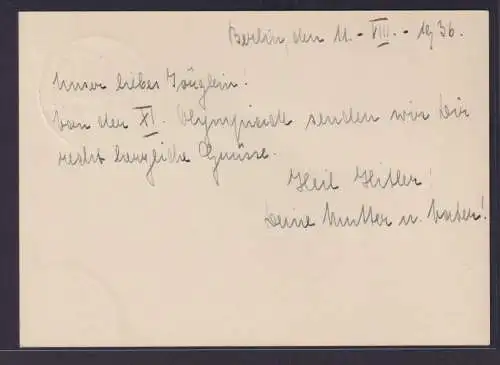 Berlin, den 11. - VIII. - 1936.
Unser liebes Jörglein!
Von der XI. Olympiade senden wir Dir
recht herzliche Grüsse.
Heil Hitler!
Deine Mutter u. Vater!